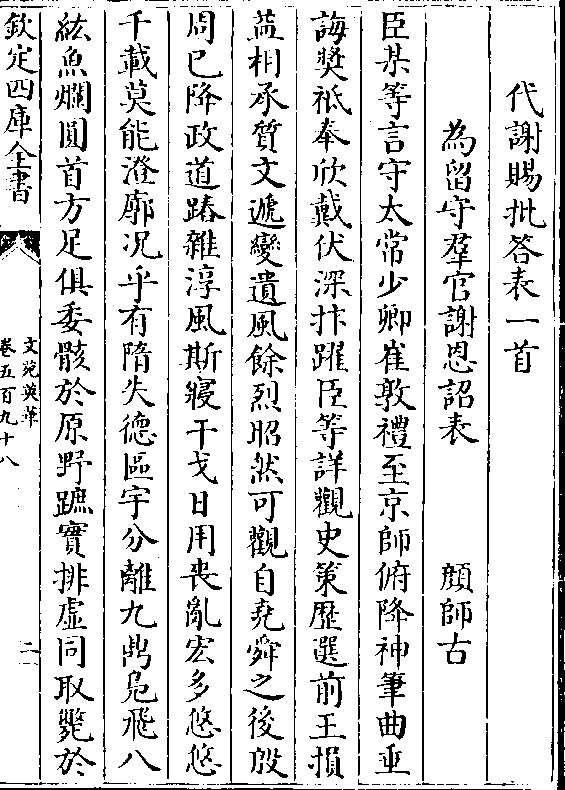 代謝賜批答表一首
為留守羣官謝恩詔表 顔師古
臣某等言守太常少卿崔敦禮至京師俯降神筆曲垂
誨奬祗奉欣戴伏深抃躍臣等詳觀史策歴選前王損
益相承質文遞變遺風餘烈昭然可觀自堯舜之後殷
周已降政道踳雜淳風斯寢干戈日用喪亂宏多悠悠
千載莫能澄廓况乎有隋失德區宇分離九鼎凫飛八
紘魚爛圓首方足俱委骸於原野蹠實排虚同取斃於
欽定四庫全書
文苑英華
卷五百九十八
二